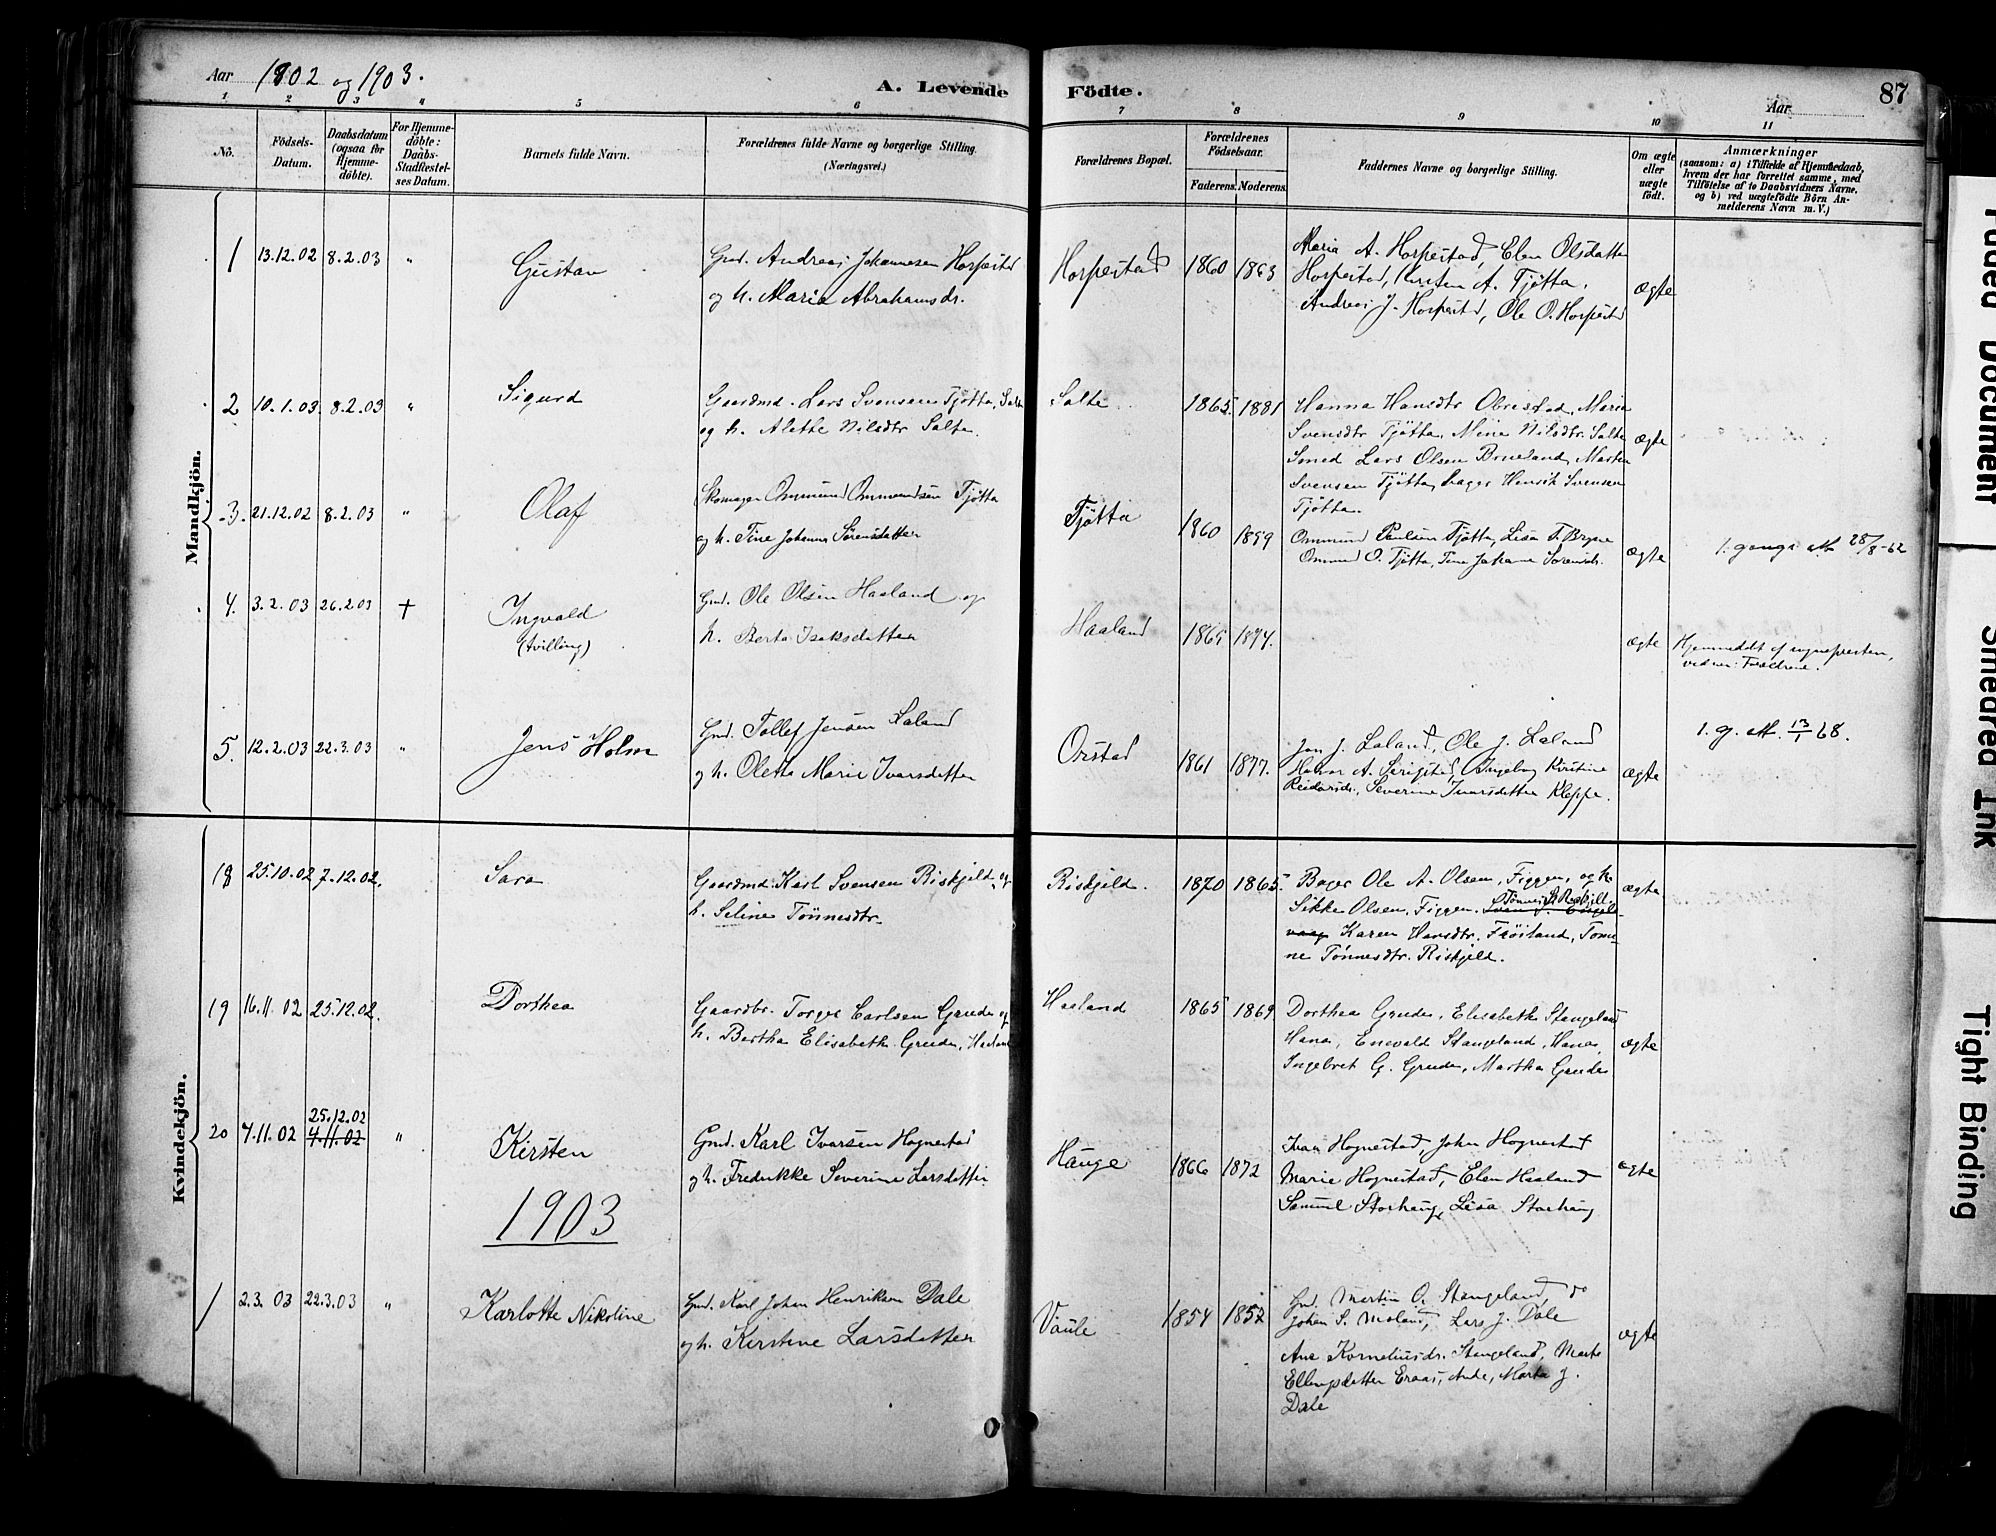 Aar 1902 og 1903.
A. Levende Födte.
Aar
87
1 2 3 4 5 6 7 8 9 10 11
Nó.
Födsels-
Datum.
Daabsdatum
(ogsaa for
Hjemme-
döbte).
For Hjemme-
döbte:
Daabs-
Stadfæstel-
ses Datum.
Barnets fulde Navn.
Forældrenes fulde Navne og borgerlige Stilling.
(Næringsvei.)
Forældrenes Bopæl.
Forældrenes
Födselsaar.
Faderens. Moderens.
Faddernes Navne og borgerlige Stilling.
Om ægte
eller
uægte
födt.
Anmærkninger
(saasom: a) i Tilfælde af Hjemmedaab,
hvem der har forrettet samme, med
Tilföielse af to Daabsvidners Navne,
og b) ved uægtefödte Börn An-
melderens Navn m. V.)
Mandkjön.
1 13.12.02 8.2.03 "
Gustav
Gmd. Andreas Johannesen Horpestad
og h. Maria Abrahamsdr.
Horpestad 1860 1863
Maria A. Horpestad, Elen Olsdatter
Horpestad, Kirsten A. Tjøtta.
Andreas J. Horpestad, Ole O. Horpestad
ægte
2 10.1.03. 8.2.03 "
Sigurd
Gaardmd. Lars Svensen Tjøtta, Salte
og h. Alette Nilsdtr Salte.
Salte 1865. 1881
Hanna Hansdtr Obrestad, Maria
Svensdtr Tjøtta, Mina Nilsdtr. Salte
Smed Lars Olsen Brueland, Marten
Svensen Tjøtta, bager Henrik Svensen
Tjøtta.
ægte
3. 21.12.02 8.2.03 "
Olaf
Skomager Ommund Ommundsen Tjøtta
og h. Tine Johanne Sørensdatter
Tjøtta 1860 1859
Ommund Paulsen Tjøtta, Lisa T. Bryne
Ommund O. Tjøtta, Tine Johanne Sorensdr.
ægte
1. gangs att 28/8-62
4. 3.2.03 26.2.03 +
Ingvald
(tvilling)
Gmd. Ole Olsen Haaland og
h. Berta Isaksdatter
Haaland 1865 1874.
ægte
Hjemmedøbt af sognepresten,
vidner: Forældrene.
5. 12.2.03 22.3.03 "
Jens Holm
Gmd. Tollef Jensen Laland
og h. Oletta Marie Ivarsdatter
Orstad 1861 1877.
Jon J. Laland, Ole J. Laland
Ingeborg Kirstine
Reidarsdr., Severine Ivarsdatter Kleppe.
ægte
1. g. att. 13/1 68.
Kvindekjön.
18 25.10.02 7.12.02.
Sara
Gaardmd. Karl Svensen Riskjeld og
h. Seline Tönnesdtr.
Riskjeld. 1870 1865.
Bager Ole A. Olsen, Figgen, og h.
Sikke Olsen, Figgen. Tönnes
Karen Hansdtr. Fröiland, Tomi-
ne Tönnesdtr. Riskjeld.
ægte
19 16.11.02 25.12.02.
Dorthea
Gaardbr. Torger Carlsen Grude og
h. Bertha Elisabeth Grude, Haaland
Haaland 1865 1869
Dorthea Grude, Elisabeth Stangeland
Hana, Enevald Stangeland, Hana,
Ingebret G. Grude, Martha Grude
ægte
20 7.11.02 25.12.02 4.11.02 "
Kirsten
Gmd. Karl Ivarsen Hognestad
og h. Fredrikke Severine Larsdatter
Hauge 1866 1872
Ivar Hognestad, John Hognestad
Marie Hognestad, Elen Haaland
Samuel Storhaug, Lisa Storhaug
ægte
1903
1 2.3.03 22.3.03 "
Karlotte Nikoline
Gmd. Karl Johan Henriksen Dale
og h. Kirstine Larsdatter
Vaule 1854 1852
Gmd. Martin O. Stangeland, do
Johan S. Moland, Lars J. Dale
Ane Korneliusdr. Stangeland, Marta
Ellingsdatter Marta J.
Dale
ægte
Faded Document
Smeared Ink
Tight Binding